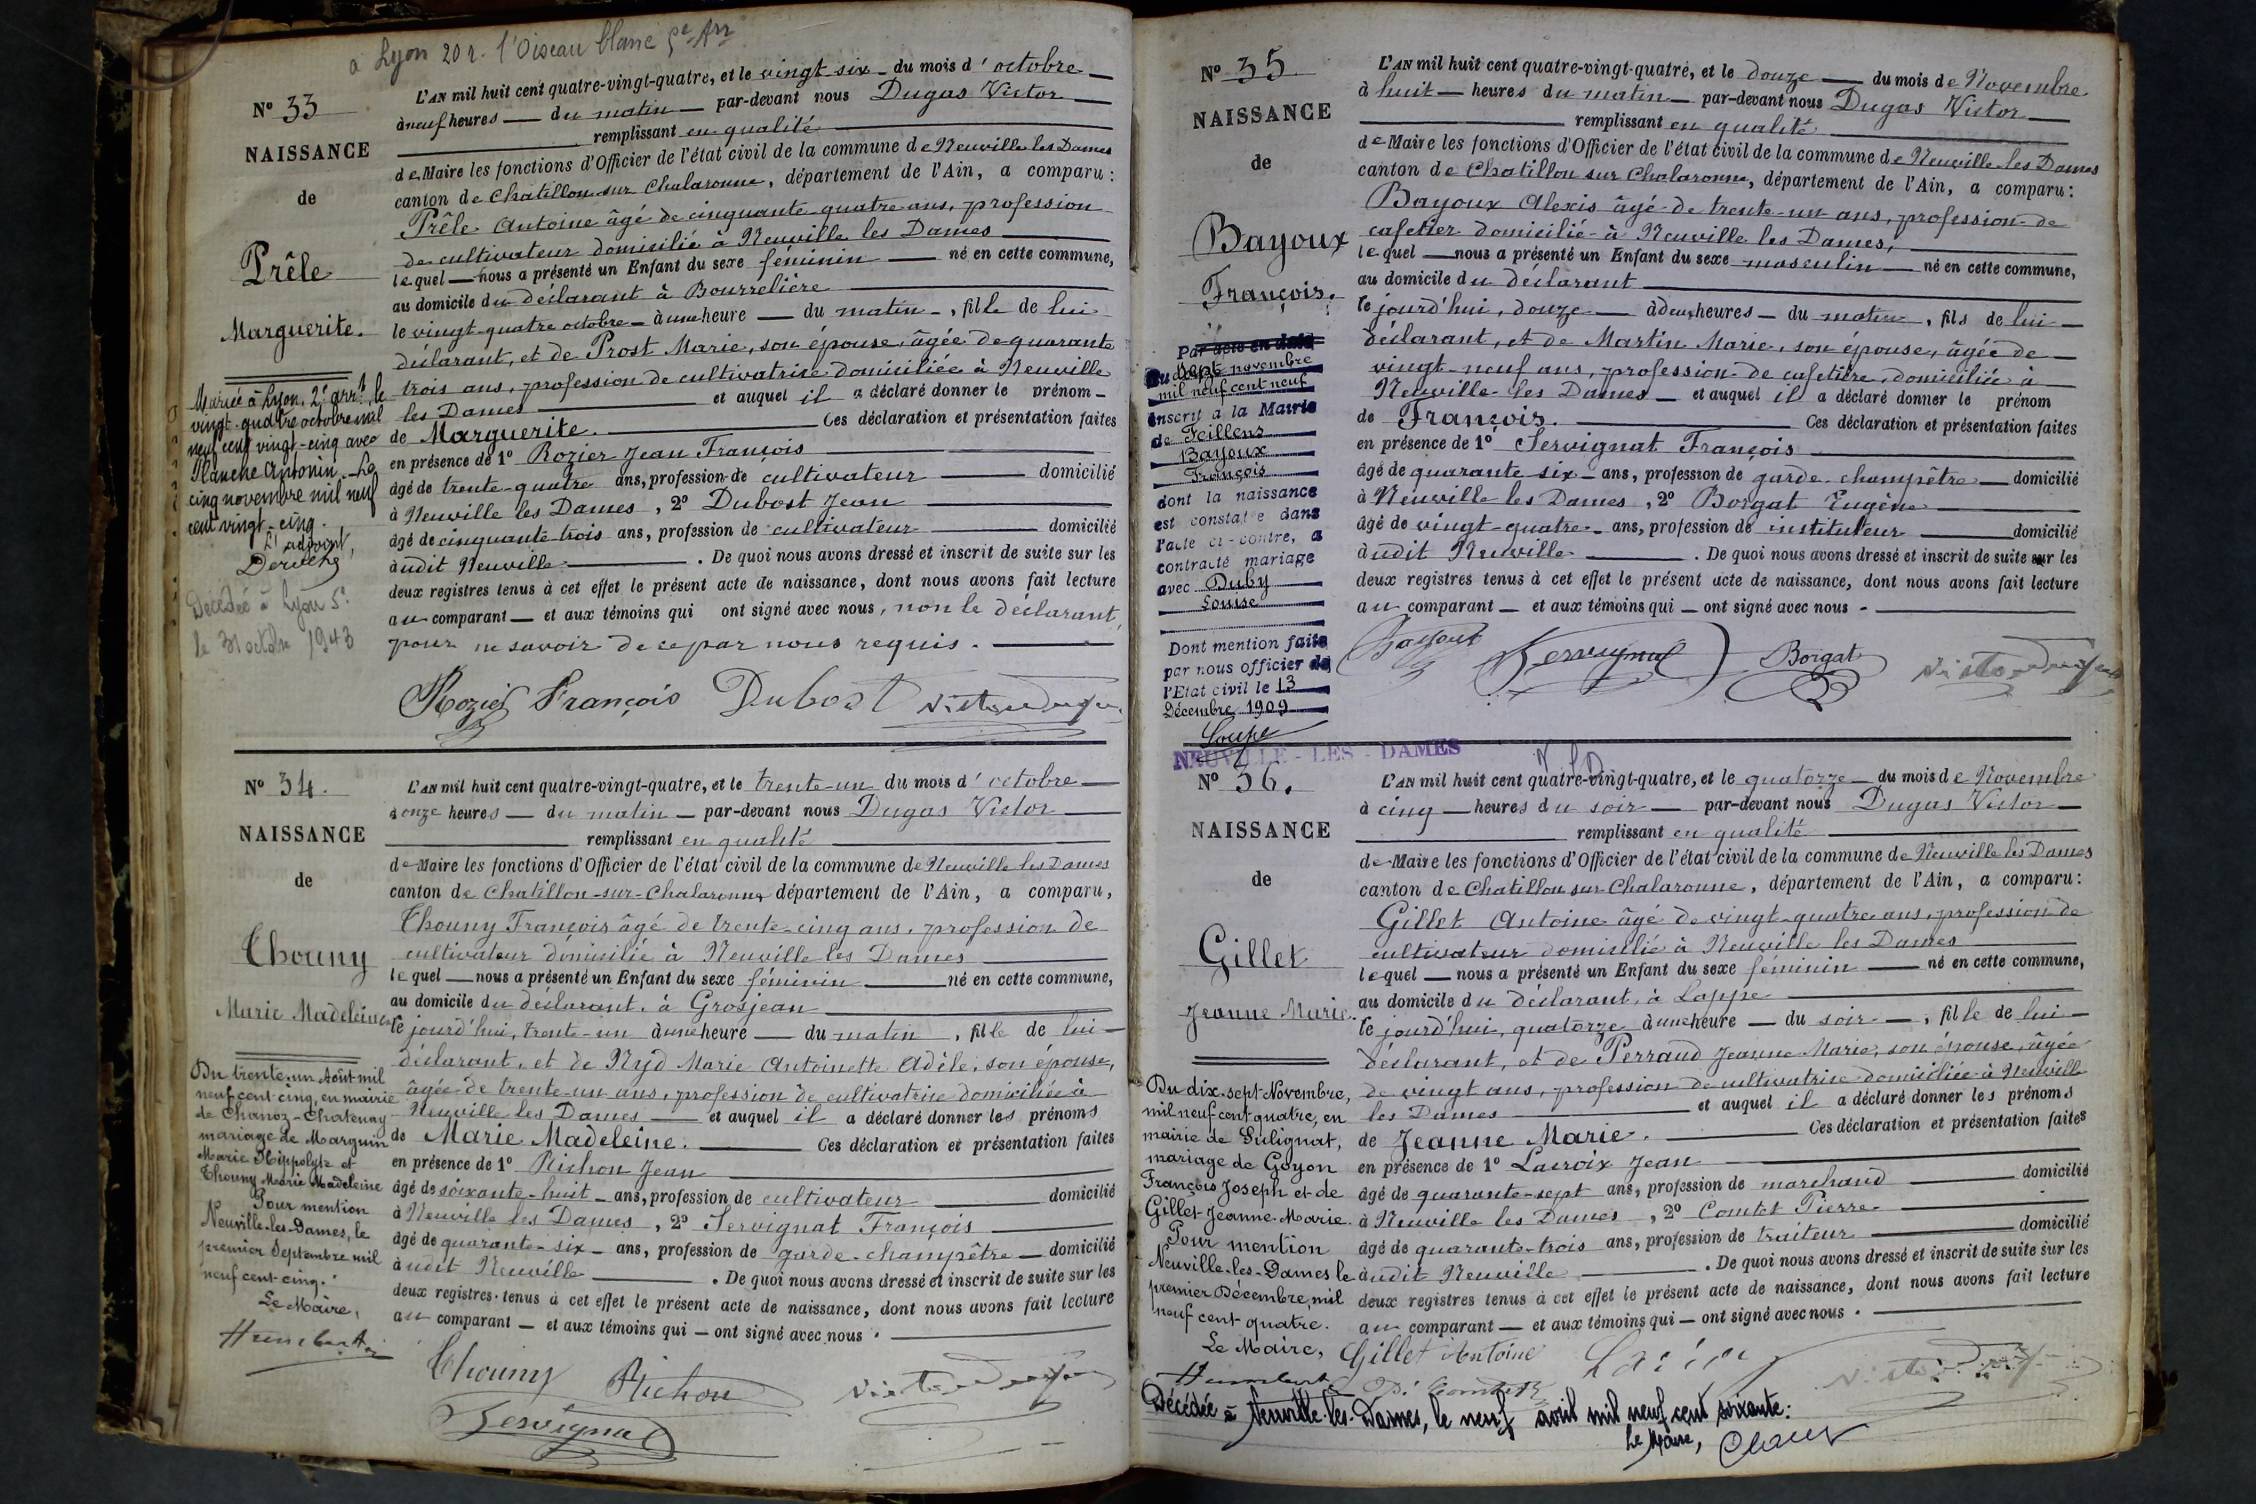 à Lyon 20 r. l'Oiseau blanc 5e Arr
N° 33
NAISSANCE
de
Prêle
Marguerite.
Mariée à Lyon, 2e arrt, le
vingt-quatre octobre mil
neuf cent vingt-cinq avec
Planche Antonin. Le
cinq novembre mil neuf
cent vingt-cinq.
L'adjoint,
Décédée à Lyon 5e
le 31 octobre 1943
L'AN mil huit cent quatre-vingt-quatre, et le vingt six du mois d'octobre
à neuf heures du matin par-devant nous Dugas Victor
remplissant en qualité
de Maire les fonctions d'Officier de l'état civil de la commune de Neuville les Dames
canton de Chatillon sur Chalaronne, département de l'Ain, a comparu :
Prêle Antoine âgé de cinquante quatre ans, profession
de cultivateur domicilié à Neuville les Dames
lequel nous a présenté un Enfant du sexe féminin né en cette commune,
au domicile du déclarant à Bourrelière
le vingt-quatre octobre à une heure du matin, fille de lui
déclarant, et de Prost Marie, son épouse, âgée de quarante
trois ans, profession de cultivatrice domiciliée à Neuville
les Dames et auquel il a déclaré donner le prénom
de Marguerite. Ces déclaration et présentation faites
en présence de 1° Rozier Jean François
âgé de trente-quatre ans, profession de cultivateur domicilié
à Neuville les Dames, 2° Dubost Jean
âgé de cinquante-trois ans, profession de cultivateur domicilié
àudit Neuville. De quoi nous avons dressé et inscrit de suite sur les
deux registres tenus à cet effet le présent acte de naissance, dont nous avons fait lecture
au comparant et aux témoins qui ont signé avec nous, non le déclarant,
pour ne savoir de ce par nous requis.
Rozier François Dubost Victor Dugas
N° 34.
NAISSANCE
de
Thouny
Marie Madeleine
Du trente-un Août mil
neuf cent cinq, en mairie
de Chanoz-Chatenay
mariage de Marguin
Marie Hippolyte et
Thouny Marie Madeleine
Pour mention
Neuville-les-Dames, le
premier Septembre mil
neuf cent cinq.
Le Maire,
Humbert
L'AN mil huit cent quatre-vingt-quatre, et le trente-un du mois d'octobre
à onze heures du matin par-devant nous Dugas Victor
remplissant en qualité
de Maire les fonctions d'Officier de l'état civil de la commune de Neuville les Dames
canton de Chatillon-sur-Chalaronne, département de l'Ain, a comparu,
Thouny François âgé de trente-cinq ans, profession de
cultivateur domicilié à Neuville les Dames
lequel nous a présenté un Enfant du sexe féminin né en cette commune,
au domicile du déclarant, à Grosjean
le jourd'hui, trente-un à une heure du matin, fille de lui
déclarant, et de Nyd Marie Antoinette Adèle, son épouse,
âgée de trente-un ans, profession de cultivatrice domiciliée à
Neuville les Dames et auquel il a déclaré donner les prénoms
de Marie Madeleine. Ces déclaration et présentation faites
en présence de 1° Richon Jean
âgé de soixante-huit ans, profession de cultivateur domicilié
à Neuville les Dames, 2° Servignat François
âgé de quarante-six ans, profession de garde-champêtre domicilié
àudit Neuville. De quoi nous avons dressé et inscrit de suite sur les
deux registres tenus à cet effet le présent acte de naissance, dont nous avons fait lecture
au comparant et aux témoins qui ont signé avec nous.
Thouny Richon Victor Dugas
Servignat
N° 35
NAISSANCE
de
Bayoux
François.
Par acte en date
du sept novembre
mil neuf cent neuf
inscrit à la Mairie
de Feillens
Bayoux
François
dont la naissance
est constatée dans
l'acte ci-contre, a
contracté mariage
avec Duby
Louise
Dont mention faite
par nous officier de
l'Etat civil le 13
Décembre 1909
NEUVILLE-LES-DAMES
L'AN mil huit cent quatre-vingt-quatre, et le douze du mois de Novembre
à huit heures du matin par-devant nous Dugas Victor
remplissant en qualité
de Maire les fonctions d'Officier de l'état civil de la commune de Neuville-les Dames
canton de Chatillon sur Chalaronne, département de l'Ain, a comparu :
Bayoux Alexis âgé de trente-un ans, profession de
cafetier domicilié à Neuville les Dames,
lequel nous a présenté un Enfant du sexe masculin né en cette commune,
au domicile du déclarant
le jourd'hui, douze à deux heures du matin, fils de lui
déclarant, et de Martin Marie, son épouse, âgée de
vingt-neuf ans, profession de cafetière, domiciliée à
Neuville-les Dames et auquel il a déclaré donner le prénom
de François. Ces déclaration et présentation faites
en présence de 1° Servignat François
âgé de quarante six ans, profession de garde-champêtre domicilié
à Neuville les Dames, 2° Borgat Eugène
âgé de vingt-quatre ans, profession de instituteur domicilié
àudit Neuville. De quoi nous avons dressé et inscrit de suite sur les
deux registres tenus à cet effet le présent acte de naissance, dont nous avons fait lecture
au comparant et aux témoins qui ont signé avec nous
Bayoux Servignat Borgat Victor Dugas
N° 36.
NAISSANCE
de
Gillet
Jeanne Marie.
Du dix-sept Novembre,
mil neuf cent quatre, en
mairie de Sulignat,
mariage de Goyon
François Joseph et de
Gillet Jeanne-Marie.
Pour mention
Neuville-les-Dames le
premier Décembre, mil
neuf cent quatre.
Le Maire,
Humbert
L'AN mil huit cent quatre-vingt-quatre, et le quatorze du mois de Novembre
à cinq heures du soir par-devant nous Dugas Victor
remplissant en qualité
de Maire les fonctions d'Officier de l'état civil de la commune de Neuville les Dames
canton de Chatillon sur Chalaronne, département de l'Ain, a comparu :
Gillet Antoine âgé de vingt-quatre ans, profession de
cultivateur domicilié à Neuville les Dames
lequel nous a présenté un Enfant du sexe féminin né en cette commune,
au domicile du déclarant, à Lappe
le jourd'hui, quatorze à une heure du soir, fille de lui
déclarant, et de Perraud Jeanne Marie, son épouse, âgée
de vingt ans, profession de cultivatrice domiciliée à Neuville
les Dames et auquel il a déclaré donner les prénoms
de Jeanne Marie. Ces déclaration et présentation faites
en présence de 1° Lacroix Jean
âgé de quarante-sept ans, profession de marchand domicilié
à Neuville les Dames, 2° Comtet Pierre
âgé de quarante-trois ans, profession de traiteur domicilié
àudit Neuville. De quoi nous avons dressé et inscrit de suite sur les
deux registres tenus à cet effet le présent acte de naissance, dont nous avons fait lecture
au comparant et aux témoins qui ont signé avec nous.
Gillet Antoine Lacroix Victor Dugas
Décédée à Neuville-les-Dames, le neuf avril mil neuf cent soixante.
Le Maire,